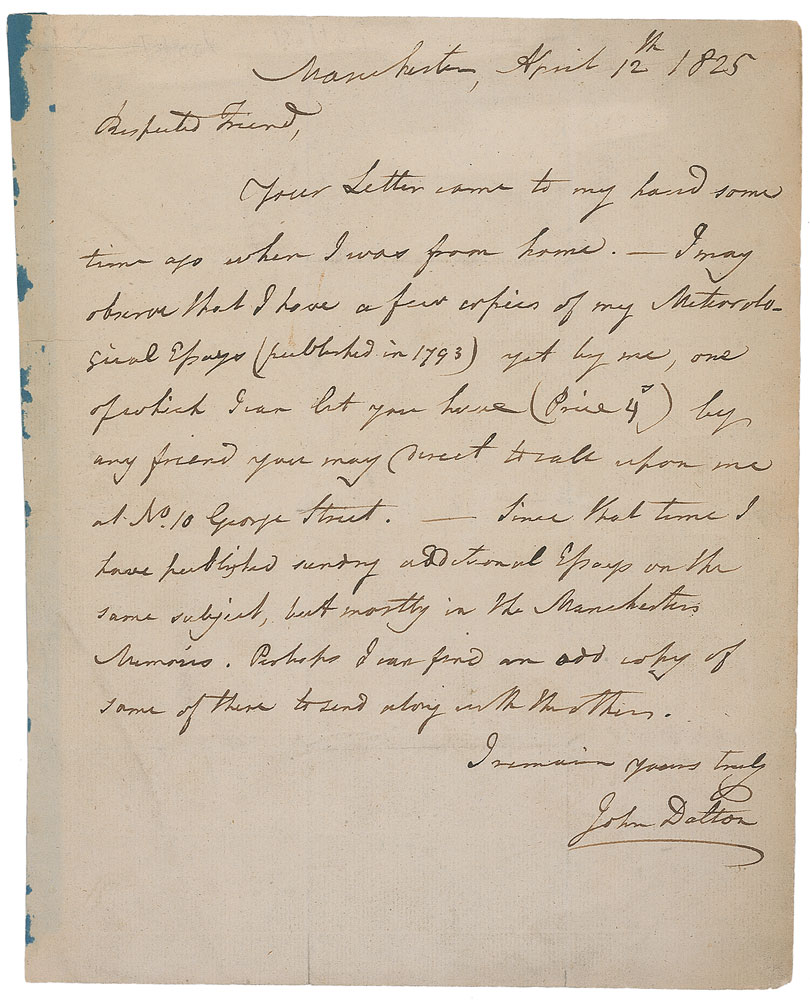 Manchester, April 12th 1825
Respected Friend,
Your Letter came to my hand some
time ago when I was from home. — I may
observe that I have a few copies of my Meteorolo-
gical Essays (published in 1793) yet by me, one
of which I can let you have (Price 4s) by
any friend you may direct to call upon me
at No. 10 George Street. — Since that time I
have published sundry additional Essays on the
same subject, but mostly in the Manchester
Memoirs. Perhaps I can find an odd copy of
some of these to send along with the others.
I remain yours truly
John Dalton